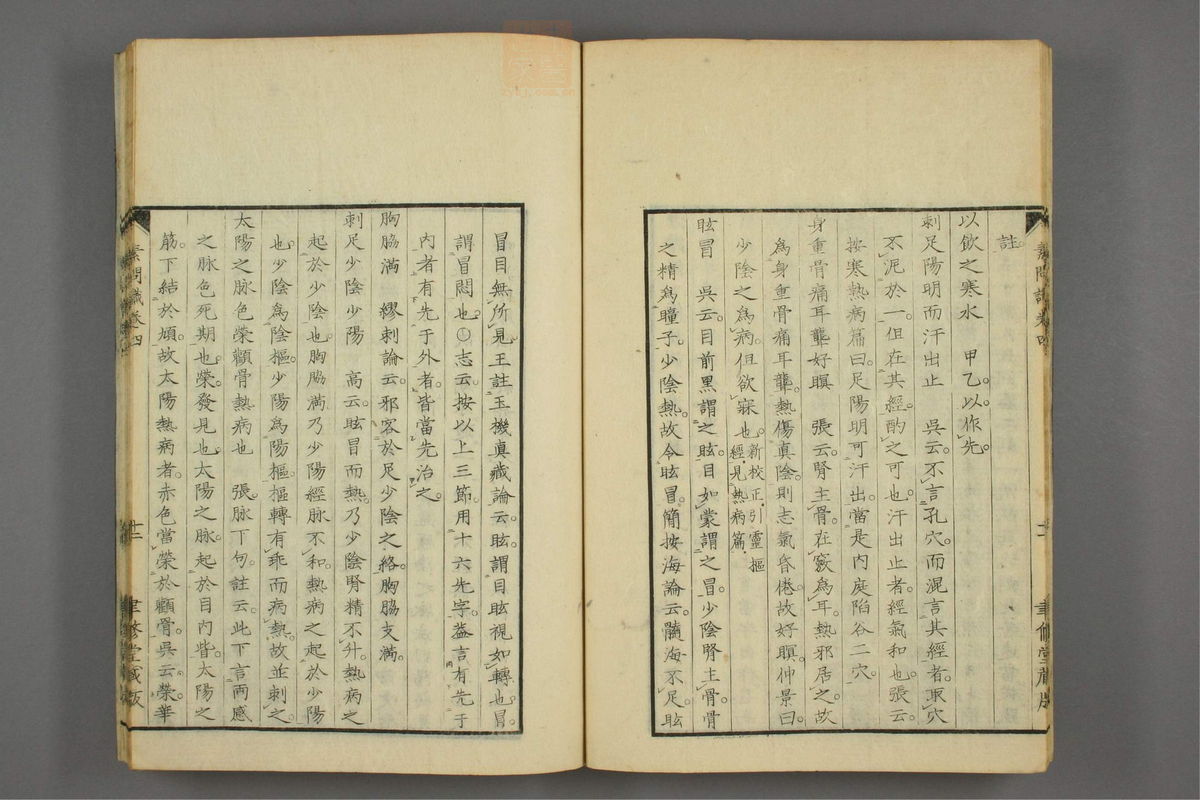 註。
以飲之寒水　甲乙。以作先。
刺足陽明而汗出止　吳云。不言孔穴。而混言其經者。取穴
不泥於一。但在其經。酌之可也。汗出止者。經氣和也。張云。
按寒熱病篇曰。足陽明可汗出。當是內庭陷谷二穴。
身重骨痛耳聾好瞑　張云。腎主骨。在竅爲耳。熱邪居之。故
爲身重骨痛耳聾。熱傷真陰。則志氣昏倦。故好瞑。仲景曰。
少陰之爲病。但欲寐也。新校正。引靈樞經。見熱病篇。
眩冒　吳云。目前黑謂之眩。目如蒙謂之冒。少陰腎主骨。骨
之精爲瞳子。少陰熱。故令眩冒。簡按海論云。髓海不足。眩
冒目無所見。王註玉機真藏論云。眩謂目眩視如轉也。冒
謂冒悶也。〇志云。按以上三節。用十六先字。蓋言有先于
內者。有先于外者。皆當先治之。
胸脇滿　繆刺論云。邪客於足少陰之絡。胸脇支滿。
刺足少陰少陽　高云。眩冒而熱。乃少陰腎精不升。熱病之
起於少陰也。胸脇滿。乃少陽經脈不和。熱病之起於少陽
也。少陰爲陰樞。少陽爲陽樞。樞轉有乖而病熱。故並刺之。
太陽之脈色榮顴骨熱病也　張。脈下句。註云。此下言兩感
之脈色死期也。榮。發見也。太陽之脈。起於目內眥。太陽之
筋。下結於頄。故太陽熱病者。赤色當榮於顴骨。吳云。榮華
素問識卷四
聿修堂藏版